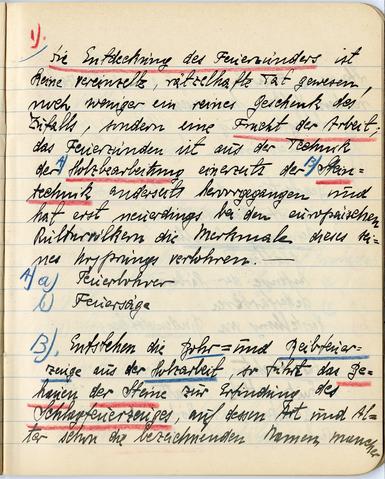 1).
Die Entdeckung des Feuerzünders ist
keine vereinzelte, rätselhafte Tat gewesen,
noch weniger ein reines Geschenk des
Zufalls, sondern eine Frucht der Arbeit,
das Feuerzünden ist aus der Technik
der A) Holzbearbeitung einerseits der B) Stein-
technik anderseits hervorgegangen und
hat erst neuerdings bei den europäischen
Kulturvölkern die Merkmale dieses sei-
nes Ursprungs verlohren. —
A) a) Feuerbohrer
b) Feuersäge
B). Entstehen die Bohr= und Reibfeuer-
zeuge aus der Holzarbeit, so führt das Be-
hauen der Steine zur Erfindung des
Schlagfeuerzeuges, auf dessen Art und Al-
ter schon die bezeichnenden Namen mancher